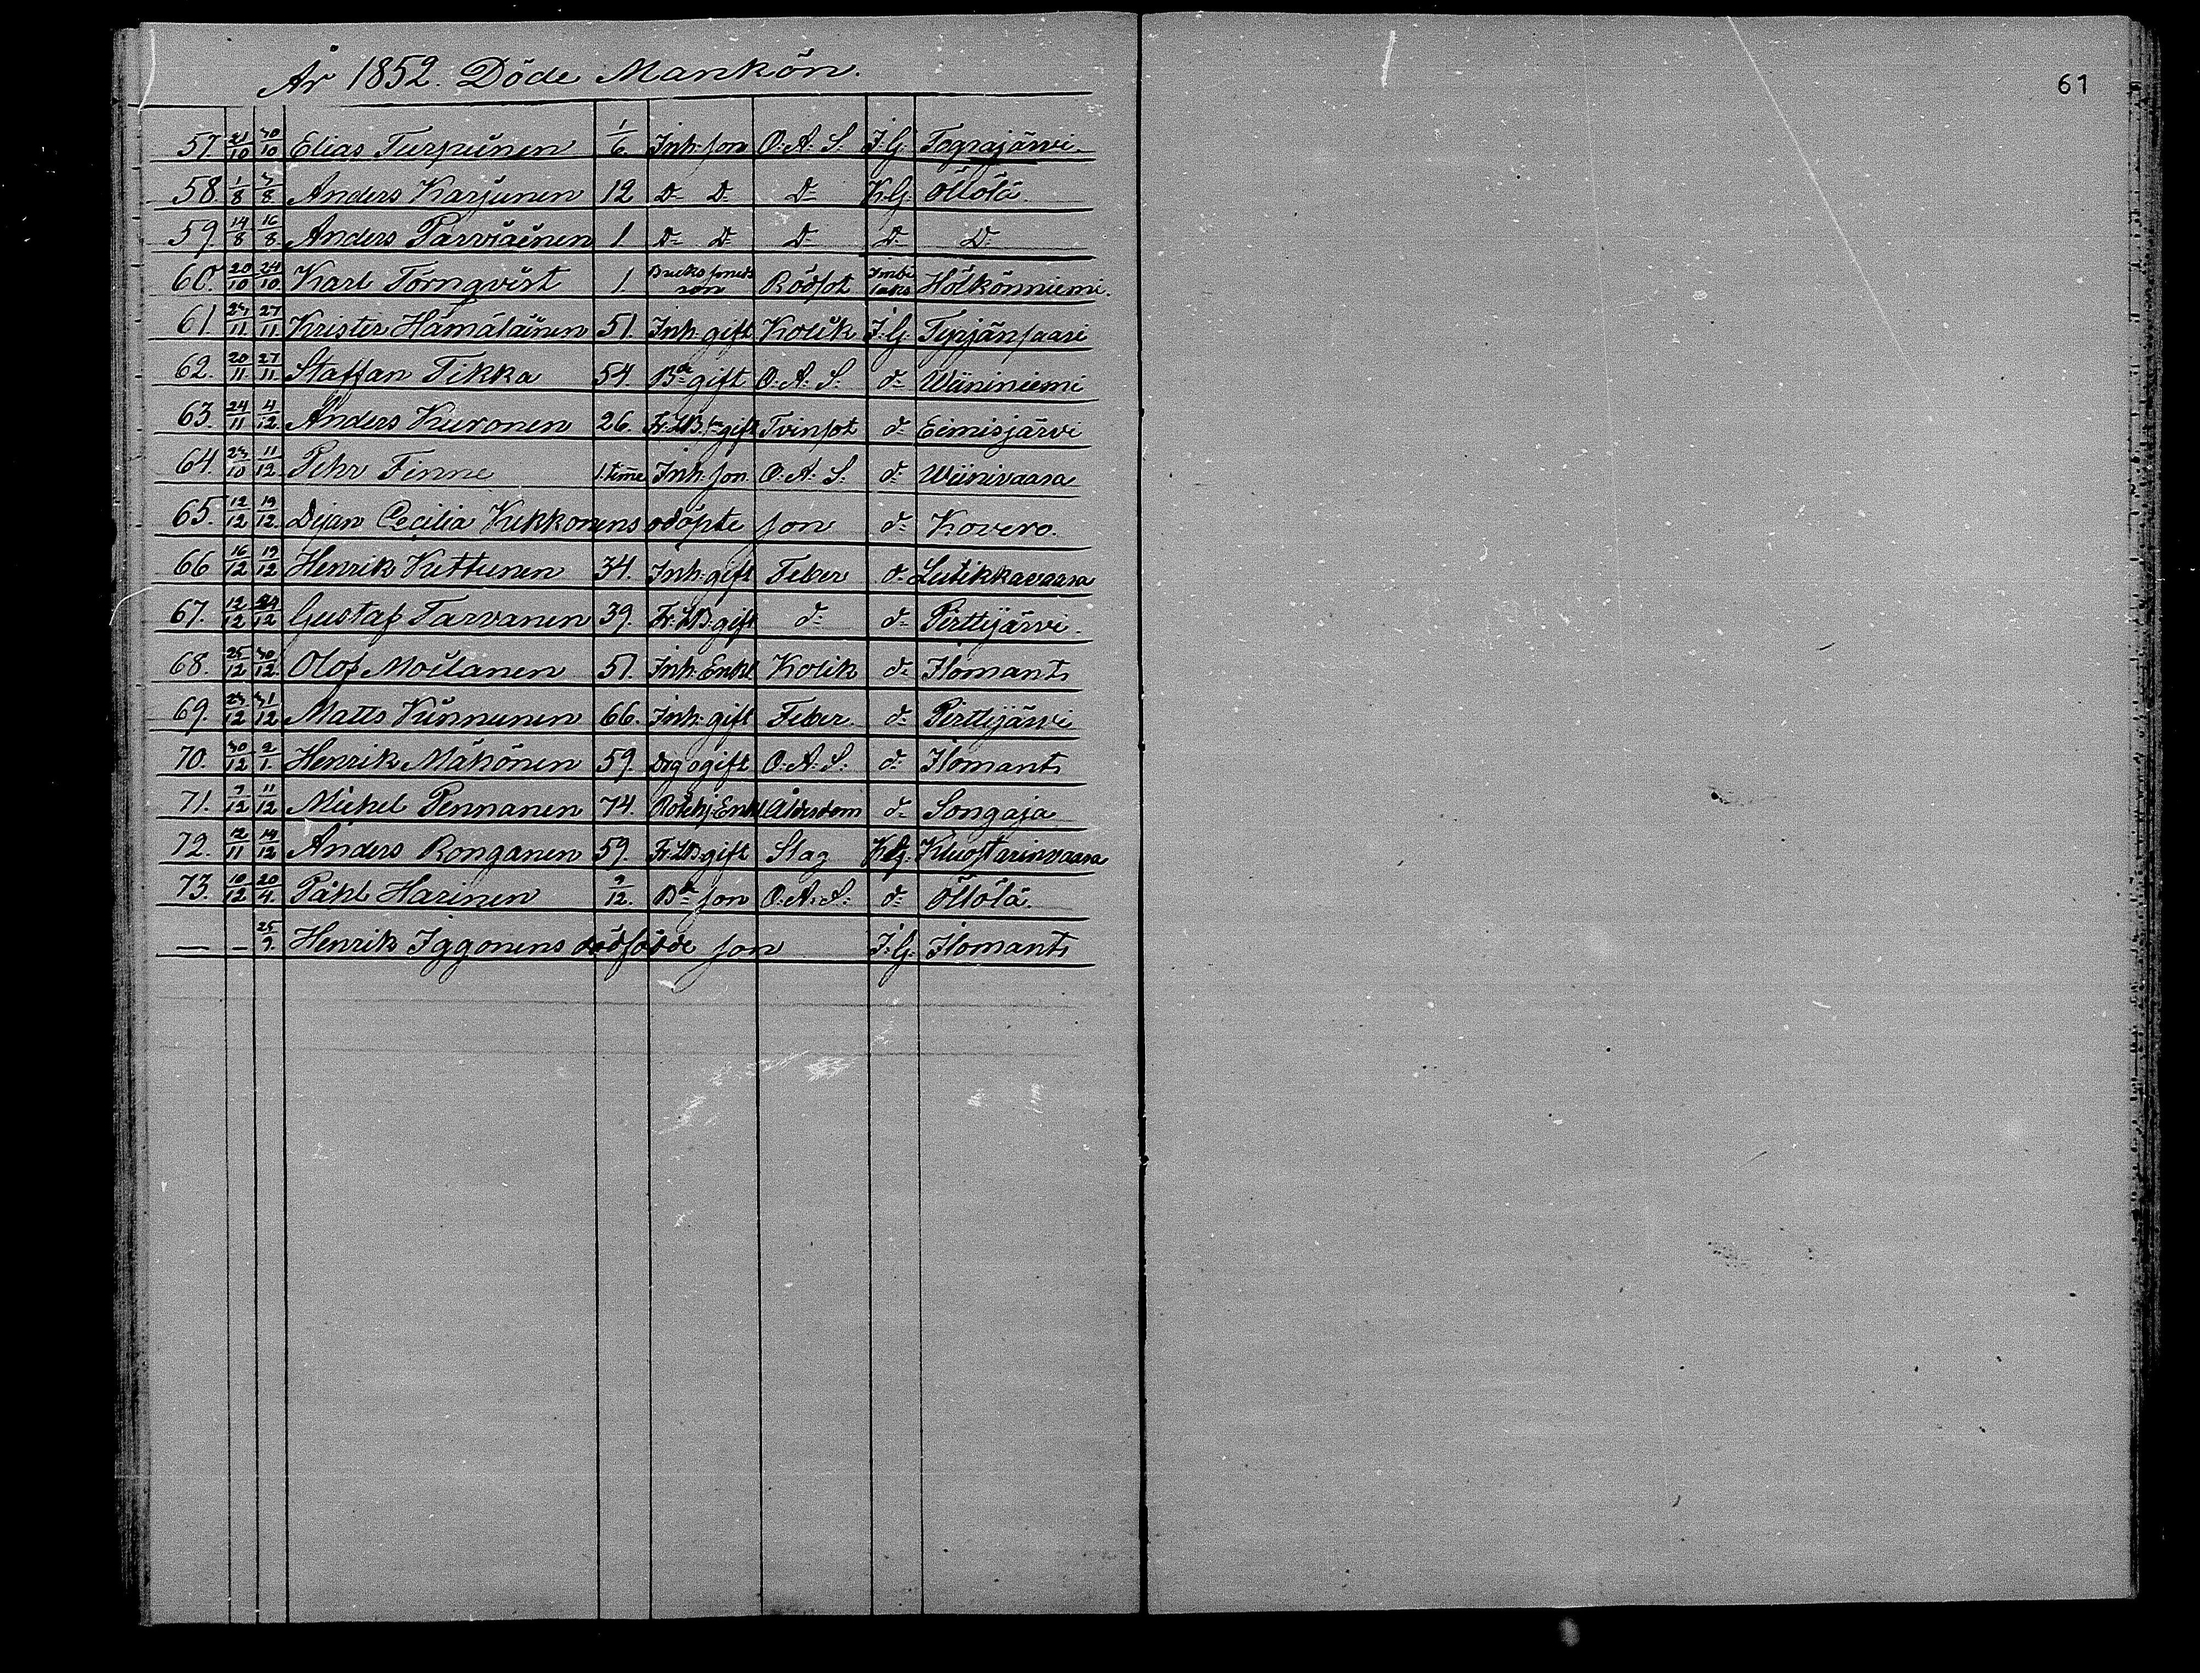 År 1852. Döde Mankön.
61
57 21/10 30/10 Elias Turpeinen 1/6 Inh: son O: A: S. I: G: Tograjärvi.
58 1/8 3/8 Anders Karjunen 12 D: D: D: K:G: Öllölä.
59. 14/8 16/8 Anders Parviäinen 1 D: D: D: D: D:
60. 20/10 24/10 Karl Törnqvist 1. son Rödsot Imbilaks Hölkönniemi.
61 23/11 27/11 Krister Hämäläinen 51. Inh: gift Kolik I: G Tyrjänsaari
62. 20/11. 27/11. Staffan Tikka 54 Bde gift O: A: S: d: Wiininiemi
63. 24/11 4/12 Anders Kuronen 26. gift Tvinsot d: Eimisjärvi
64. 23/10 11/12 Pehr Finne 1. time Inh: son O: A: S: d: Wiinivaara
65. 12/12 19/12 Dejan Cecilia Kukkonens odöpte son d: Kovero.
66 16/12 19/12 Henrik Kuttunen 34. Inh: gift Feber d: Lutikkavaara
67. 12/12 24/12 Gustaf Tarvanen 39. Fr: LB: gift d: d: Perttijärvi.
68. 25/12 30/12. Olof Moilanen 51. Inh: Enkl Kolik d: Ilomants
69. 23/12 31/12 Matts Kinnunen 66. Inh: gift Feber. d: Perttijärvi
70. 30/12 2/1. Henrik Mähönen 59. Drg ogift O: A: S: d: Ilomants
71. 7/12 11/12 Michel Pennanen 74. Enkl Ålderdom d: Songaja
72. 12/11 14/12 Anders Ronganen 59. Fr: LB: gift Slag K:G: Kluostarinvaara
73. 10/12 20/4. Påhl Harinen 9/12. Bde son O: A: S: d: Öllölä.
— — 25/9. Henrik Iggonens dödfödde son I: G: Ilomants